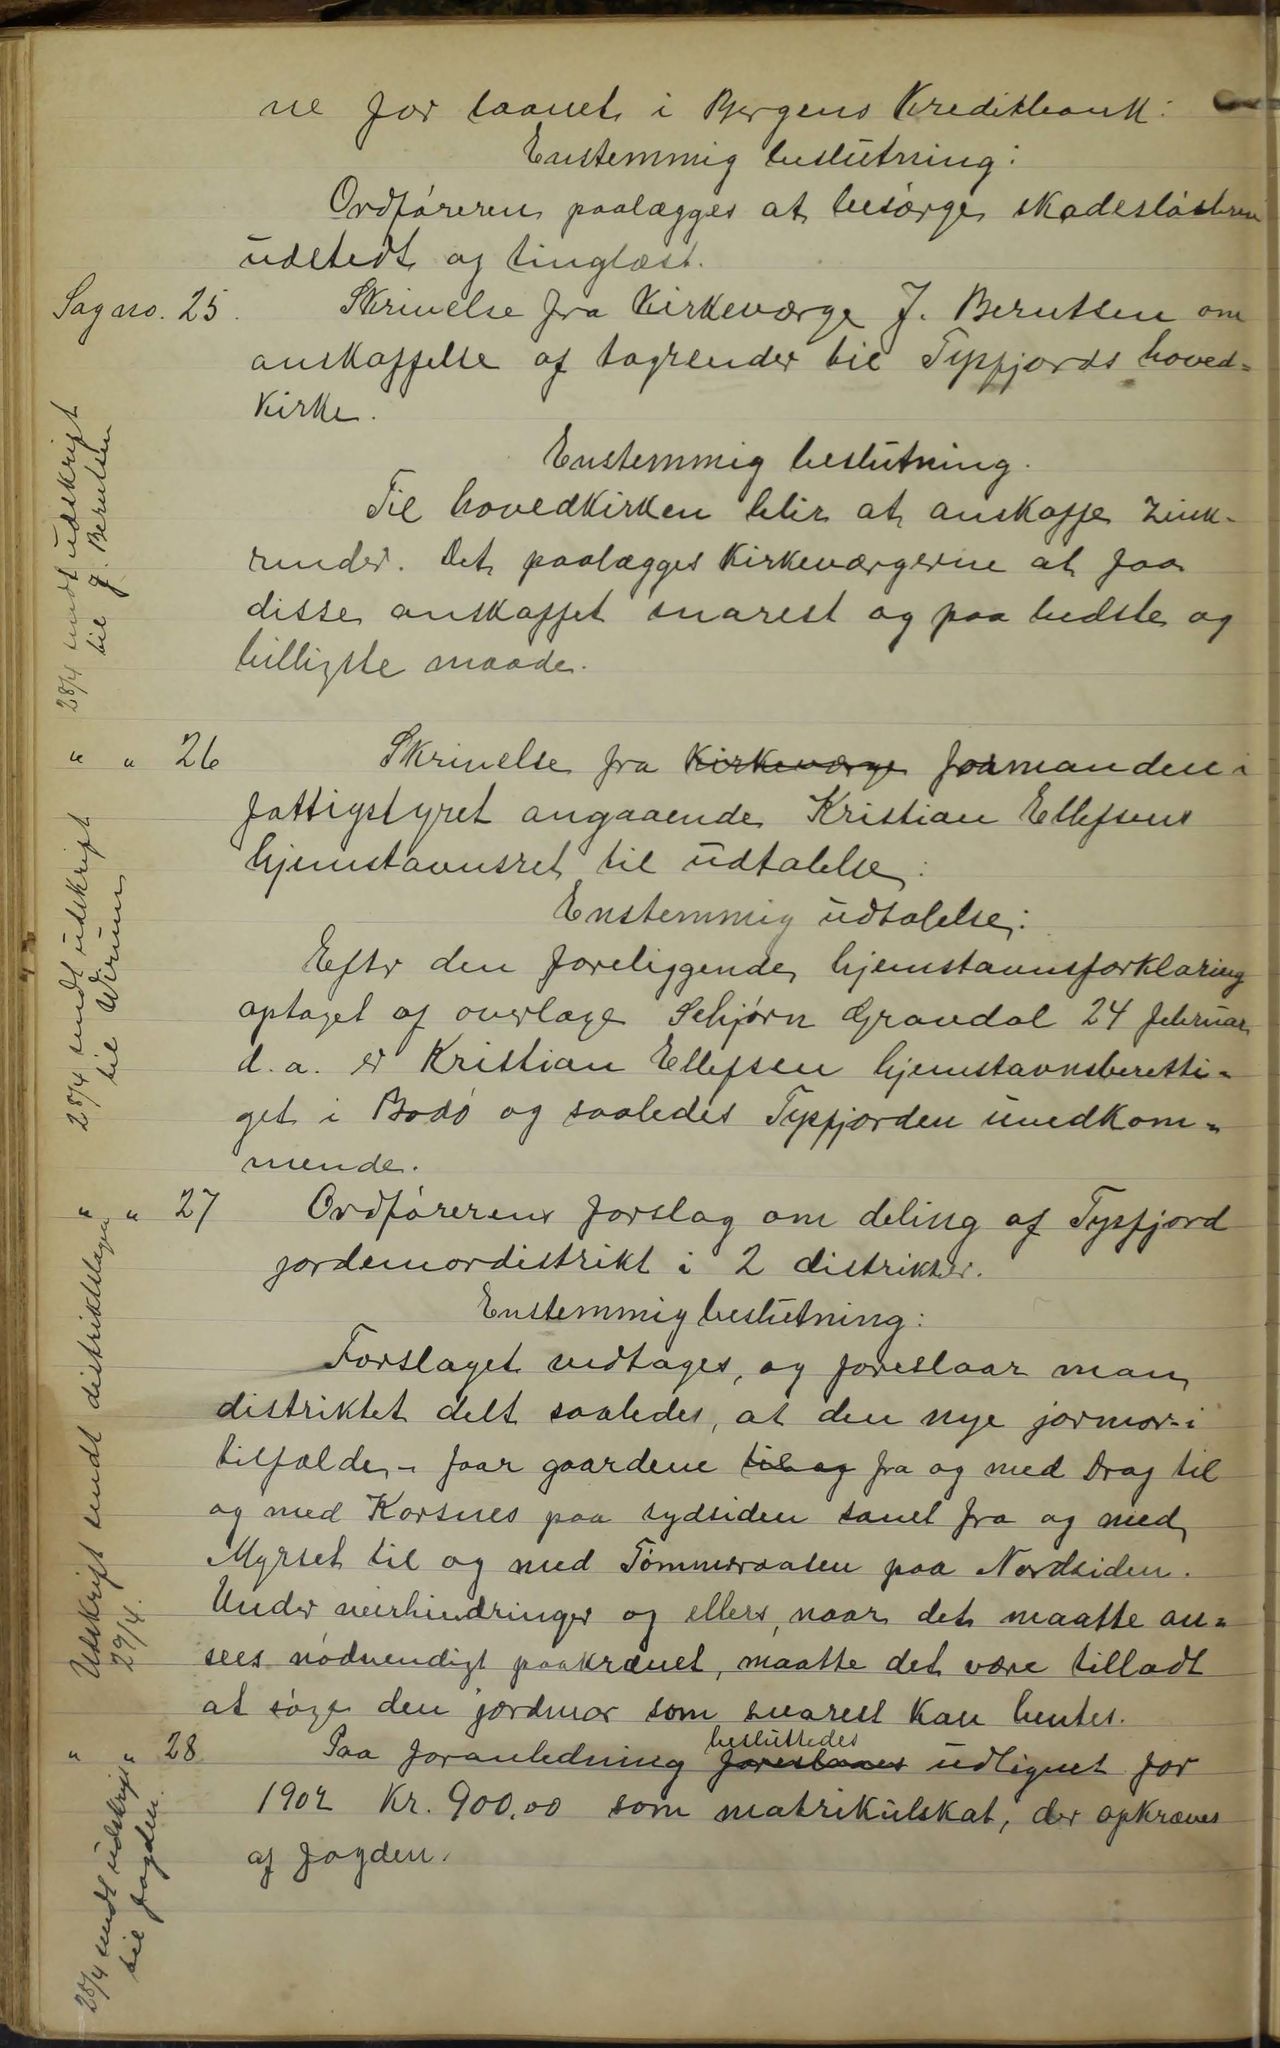 ne for laanet i Bergens Kreditbank:
Enstemmig beslutning:
Ordføreren paalægges at besørge skadesløsbrev
udstedt og tinglæst.
Sag no. 25. Skrivelse fra Kirkeværge J. Berntsen om
anskaffelse af tagrender til Tysfjords hoved-
kirke.
Enstemmig beslutning.
Til hovedkirken blir at anskaffe zink-
render. Det paalægges Kirkeværgerne at faa
disse anskaffet snarest og paa bedste og
billigste maade.
28/4 sendt udskrift
til J. Berntsen
" " 26 Skrivelse fra Kirkeværge formanden i
fattigstyret angaaende Kristian Ellefsens
hjemstavnsret til udtalelse:
Enstemmig udtalelse:
Efter den foreliggende hjemstavnsforklaring
optaget af overlæge Schjørn Gravdal 24 februar
d. a. er Kristian Ellefsen hjemstavnsberetti-
get i Bodø og saaledes Tysfjorden uvedkom-
mende.
28/4 sendt udskrift
til
" " 27 Ordførerens forslag om deling af Tysfjord
jordemordistrikt i 2 distrikter.
Enstemmig beslutning:
Forslaget vedtages, og foreslaar man
distriktet delt saaledes, at den nye jormor - i
tilfælde - faar gaardene til og fra og med Drag til
og med Korsnes paa sydsiden samt fra og med
Myrset til og med Tømmeraasen paa Nordsiden.
Under veirhindringer og ellers, naar det maatte an-
sees nødvendigt paakrævet, maatte det være tilladt
at søge den jordmor som snarest kan hentes.
Udskrift sendt distriktslægen
29/4.
" " 28 Paa foranledning foreslaaes besluttedes udlignet for
1902 Kr. 900,00 som matrikulskat, der opkræves
af fogden.
28/4 sendt udskrift
til fogden.